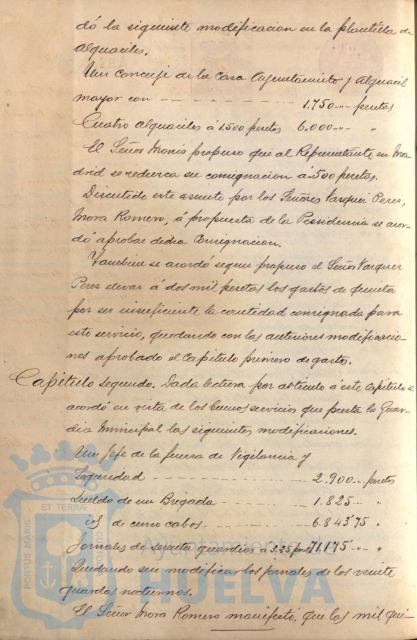 dó la siguiente modificacion en la plantilla de
Alguaciles.
Un conserje de la Casa Ayuntamiento y Alguacil
mayor con 1.750 pesetas
Cuatro Alguaciles á 1500 pesetas 6.000 "
El Señor Monis propuso que al Representante en Ma
drid se redusca su consignacion á 500 pesetas.
Discutido este asunto por los Señores Vazquez Perez,
Mora Romero, á propuesta de la Presidencia se acor-
dó aprobar dicha consignacion.
Tambien se acordó segun propuso el Señor Vazquez
Perez elevar á dos mil pesetas los gastos de quintas
por ser insuficiente la cantidad consignada para
este servicio, quedando con las anteriores modificacio-
nes aprobado el Capítulo primero de gastos.
Capítulo segundo. Dada lectura por artículo á este Capítulo se
acordó en vista de los buenos servicios que presta la Guar-
dia Municipal las siguientes modificaciones.
Un Jefe de la fuerza de Vigilancia y
Seguridad 2.900 pesetas
Sueldo de un Brigada 1.825 "
id de cinco cabos 6.843'75 "
Jornales de guardias á 3.25 71.175 "
Quedando sin modificar los jornales de los veinte
guardas nocturnos.
El Señor Mora Romero manifestó, que las mil qui-
PORTUS MARIS ET TERRAE
Ayuntamiento de
HUELVA